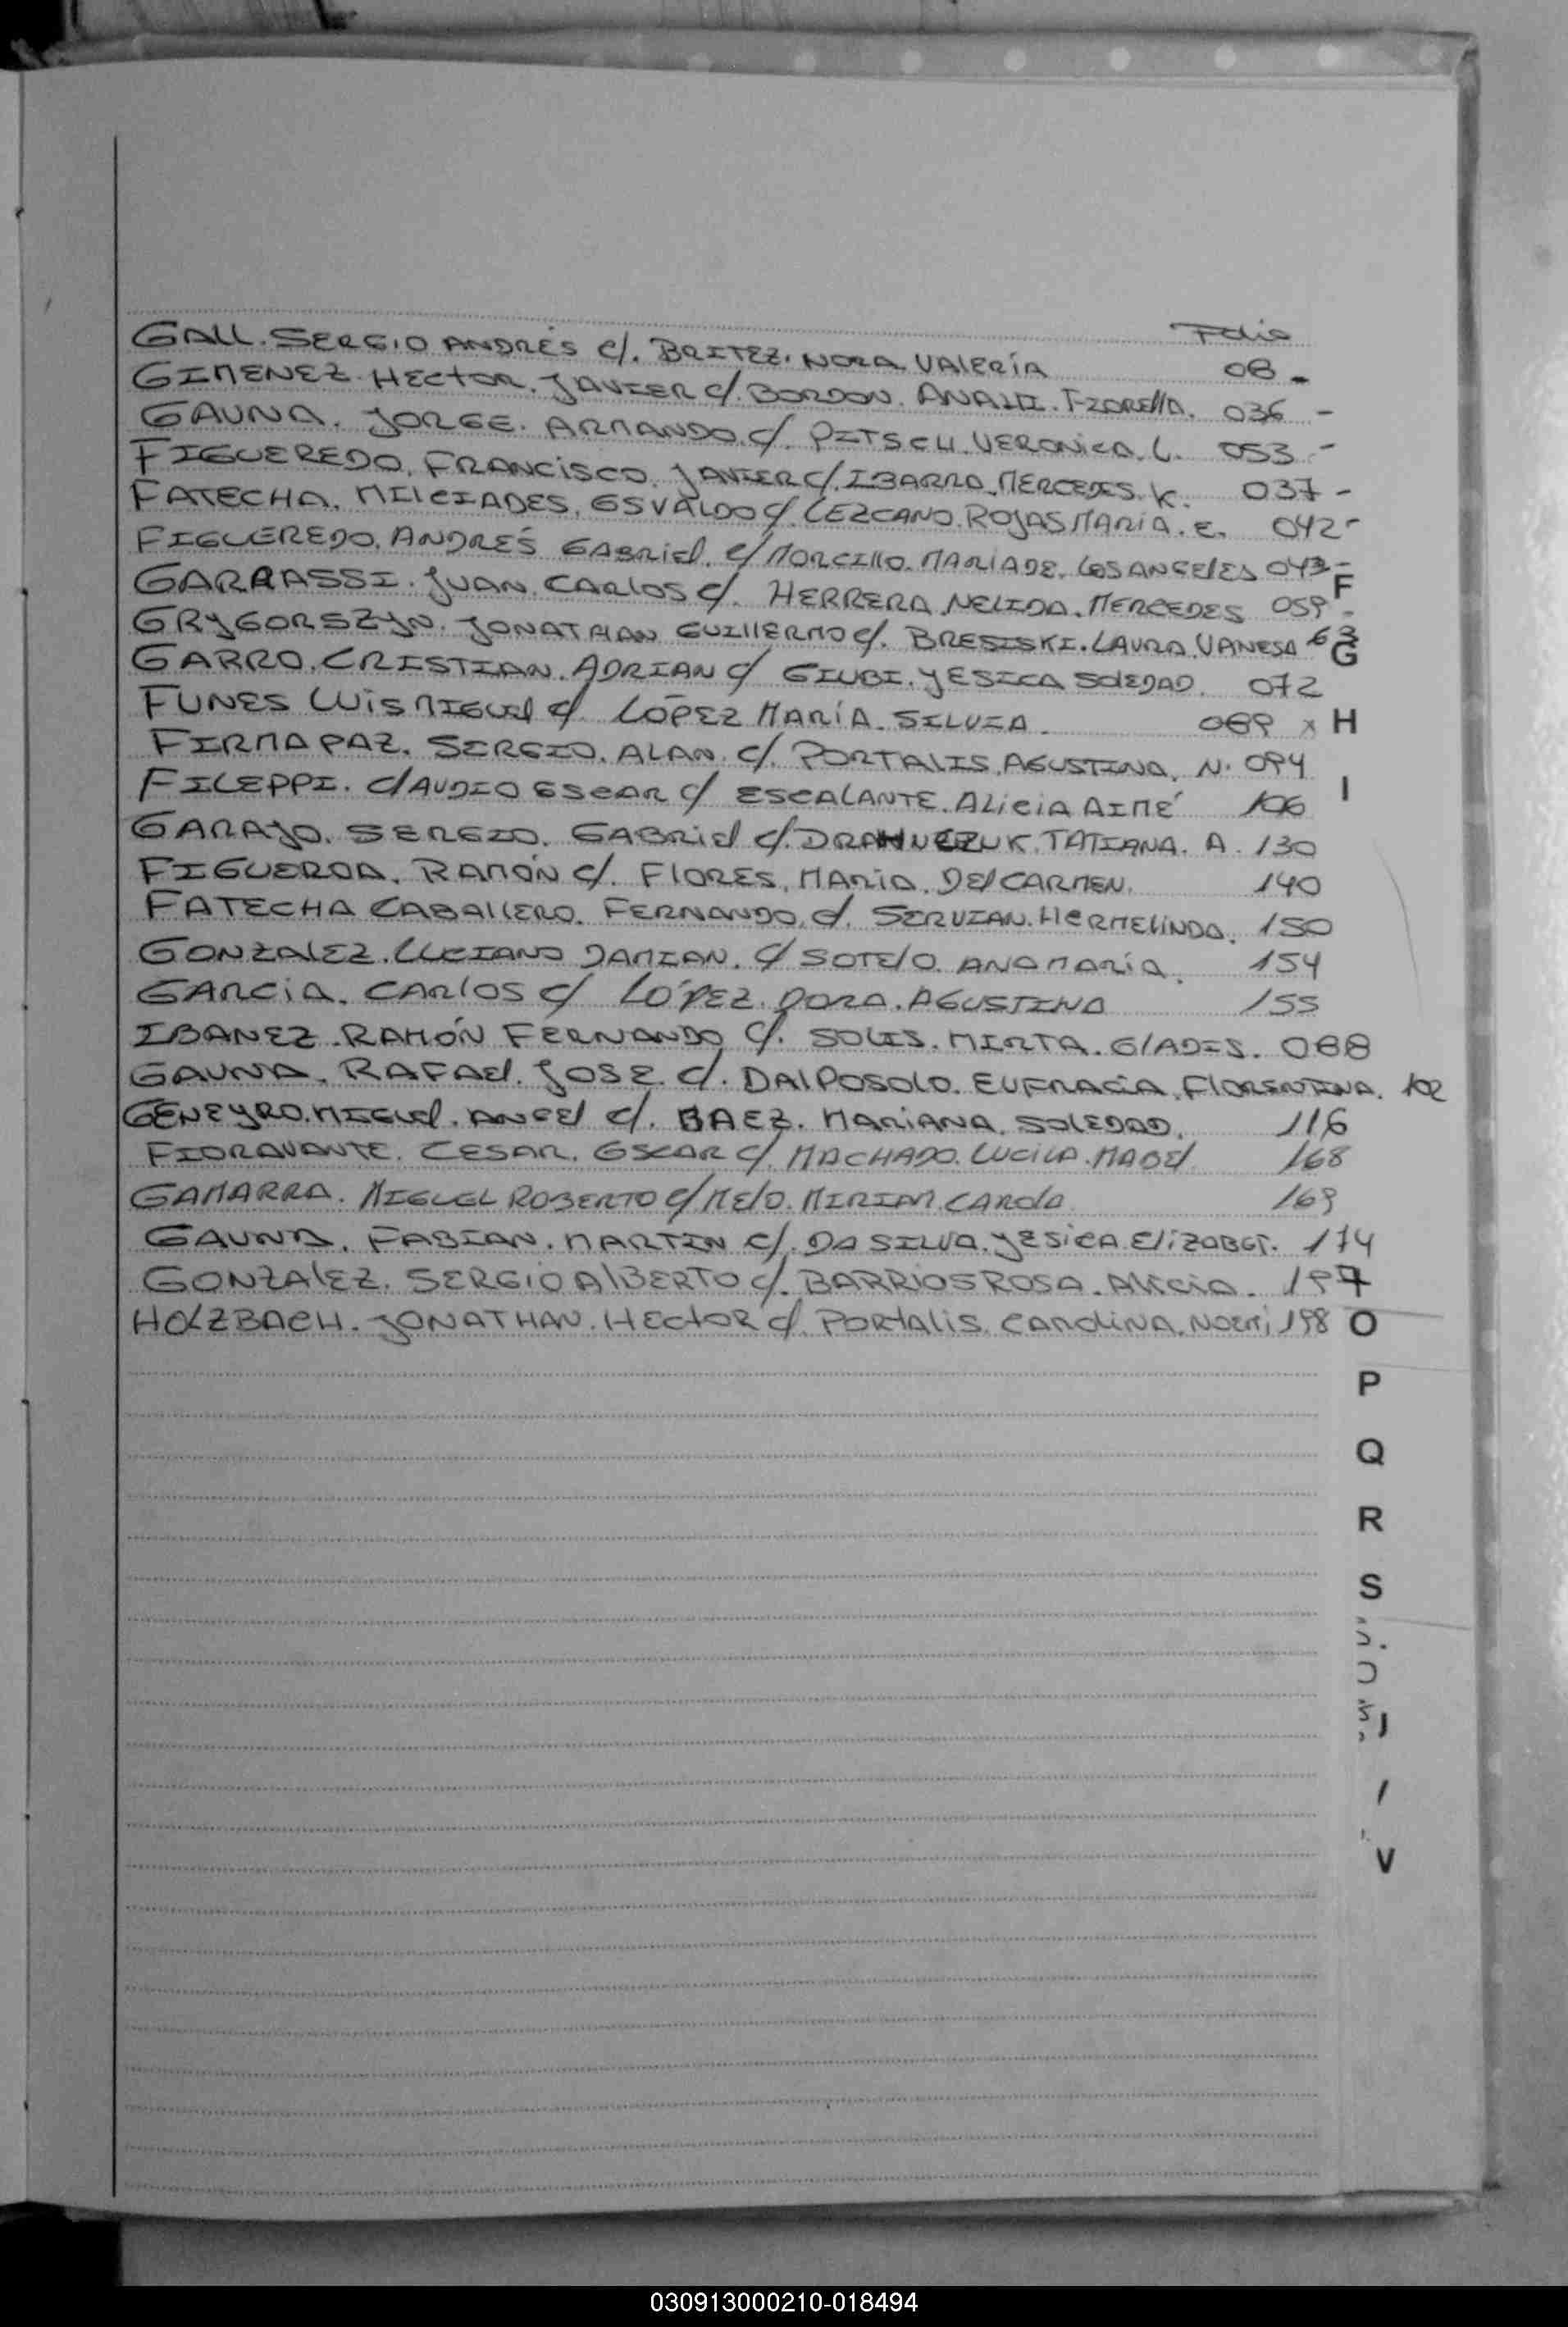 Folio
GALL. SERGIO ANDRÉS c/. BRITEZ. NORA VALERÍA 08 -
GIMENEZ. HECTOR. JAVIER c/. BORDON. ANALII. FIORELLA. 036 -
GAUNA. JORGE. ARMANDO. c/. PITSCH. VERONICA. L. 053 -
FIGUEREDO. FRANCISCO. JAVIER c/. IBARRA. MERCEDES. K. 037 -
FATECHA. MILCIADES. OSVALDO c/. LEZCANO. ROJAS MARIA. E. 042 -
FIGUEREDO. ANDRÉS GABRIEL. c/ MORCILLO. MARIA DE. LOS ANGELES 043 -
F
GARRASSI. JUAN. CARLOS c/. HERRERA. NELIDA. MERCEDES 059 -
GRYGORSZYN. JONATHAN GUILLERMO c/. BRESISKI. LAURA. VANESA 63
G
GARRO. CRISTIAN. ADRIAN c/ GIUBI. YESICA SOLEDAD. 072
FUNES LUIS MIGUEL c/. LÓPEZ MARÍA. SILVIA. 089 x H
FIRMAPAZ. SERGIO. ALAN. c/. PORTALIS. AGUSTINA. N. 094
FILEPPI. CLAUDIO OSCAR c/ ESCALANTE. ALICIA AIMÉ 106 I
GARAYO. SERGIO. GABRIEL c/. DRAHUCZUK. TATIANA. A. 130
FIGUEROA. RAMÓN c/. FLORES. MARIA. DEL CARMEN. 140
FATECHA CABALLERO. FERNANDO. c/. SERVIAN. HERMELINDA. 150
GONZALEZ. LUCIANO DAMIAN. c/ SOTELO. ANA MARÍA. 154
GARCIA. CARLOS c/ LÓPEZ. DORA. AGUSTINA 155
IBANEZ. RAMÓN FERNANDO c/. SOLIS. MIRTA. GLADIS. 088
GAUNA. RAFAEL. JOSE. c/. DALPOSOLO. EUFRACIA. FLORENTINA. 102
GENEYRO. MIGUEL. ANGEL c/. BAEZ. MARIANA. SOLEDAD. 116
FIORAVANTE. CESAR. OSCAR c/. MACHADO. LUCILA. MABEL 168
GAMARRA. MIGUEL ROBERTO c/ MELO. MIRIAM. CAROLA 169
GAUNA. FABIAN. MARTIN c/. DA SILVA. YESICA ELIZABET. 174
GONZALEZ. SERGIO ALBERTO c/. BARRIOS ROSA. ALICIA. 197
HOLZBACH. JONATHAN. HECTOR c/. PORTALIS. CAROLINA. NOEMI 198 O
P
Q
R
S
V
030913000210-018494